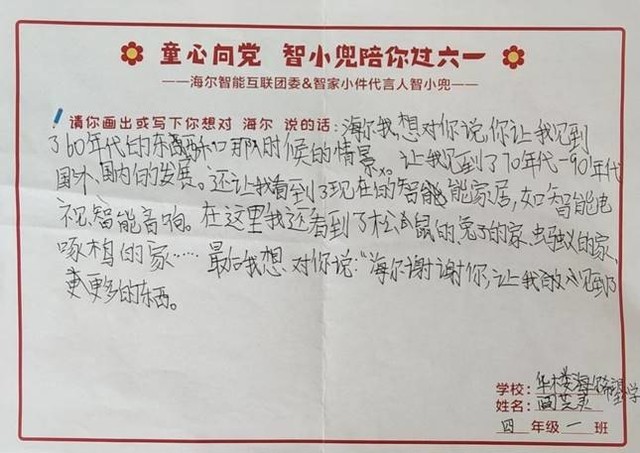 童心向党 智小兜陪你过六一
——海尔智能互联团委&智家小件代言人智小兜——
请你画出或写下你想对 海尔 说的话：海尔我,想对你说,你让我见到
了60年代的东西和那时候的情景。让我见到了70年代-90年代
国外、国内的发展。还让我看到了现在的智能能家居,如智能电
视、智能音响。在这里我还看到了松鼠的、兔子的家、蚂蚁的家、
啄鸟的家……最后我想对你说:“海尔谢谢你,让我见到了
更多的东西。
学校：华楼海尔希望学
姓名：
四 年级 一 班